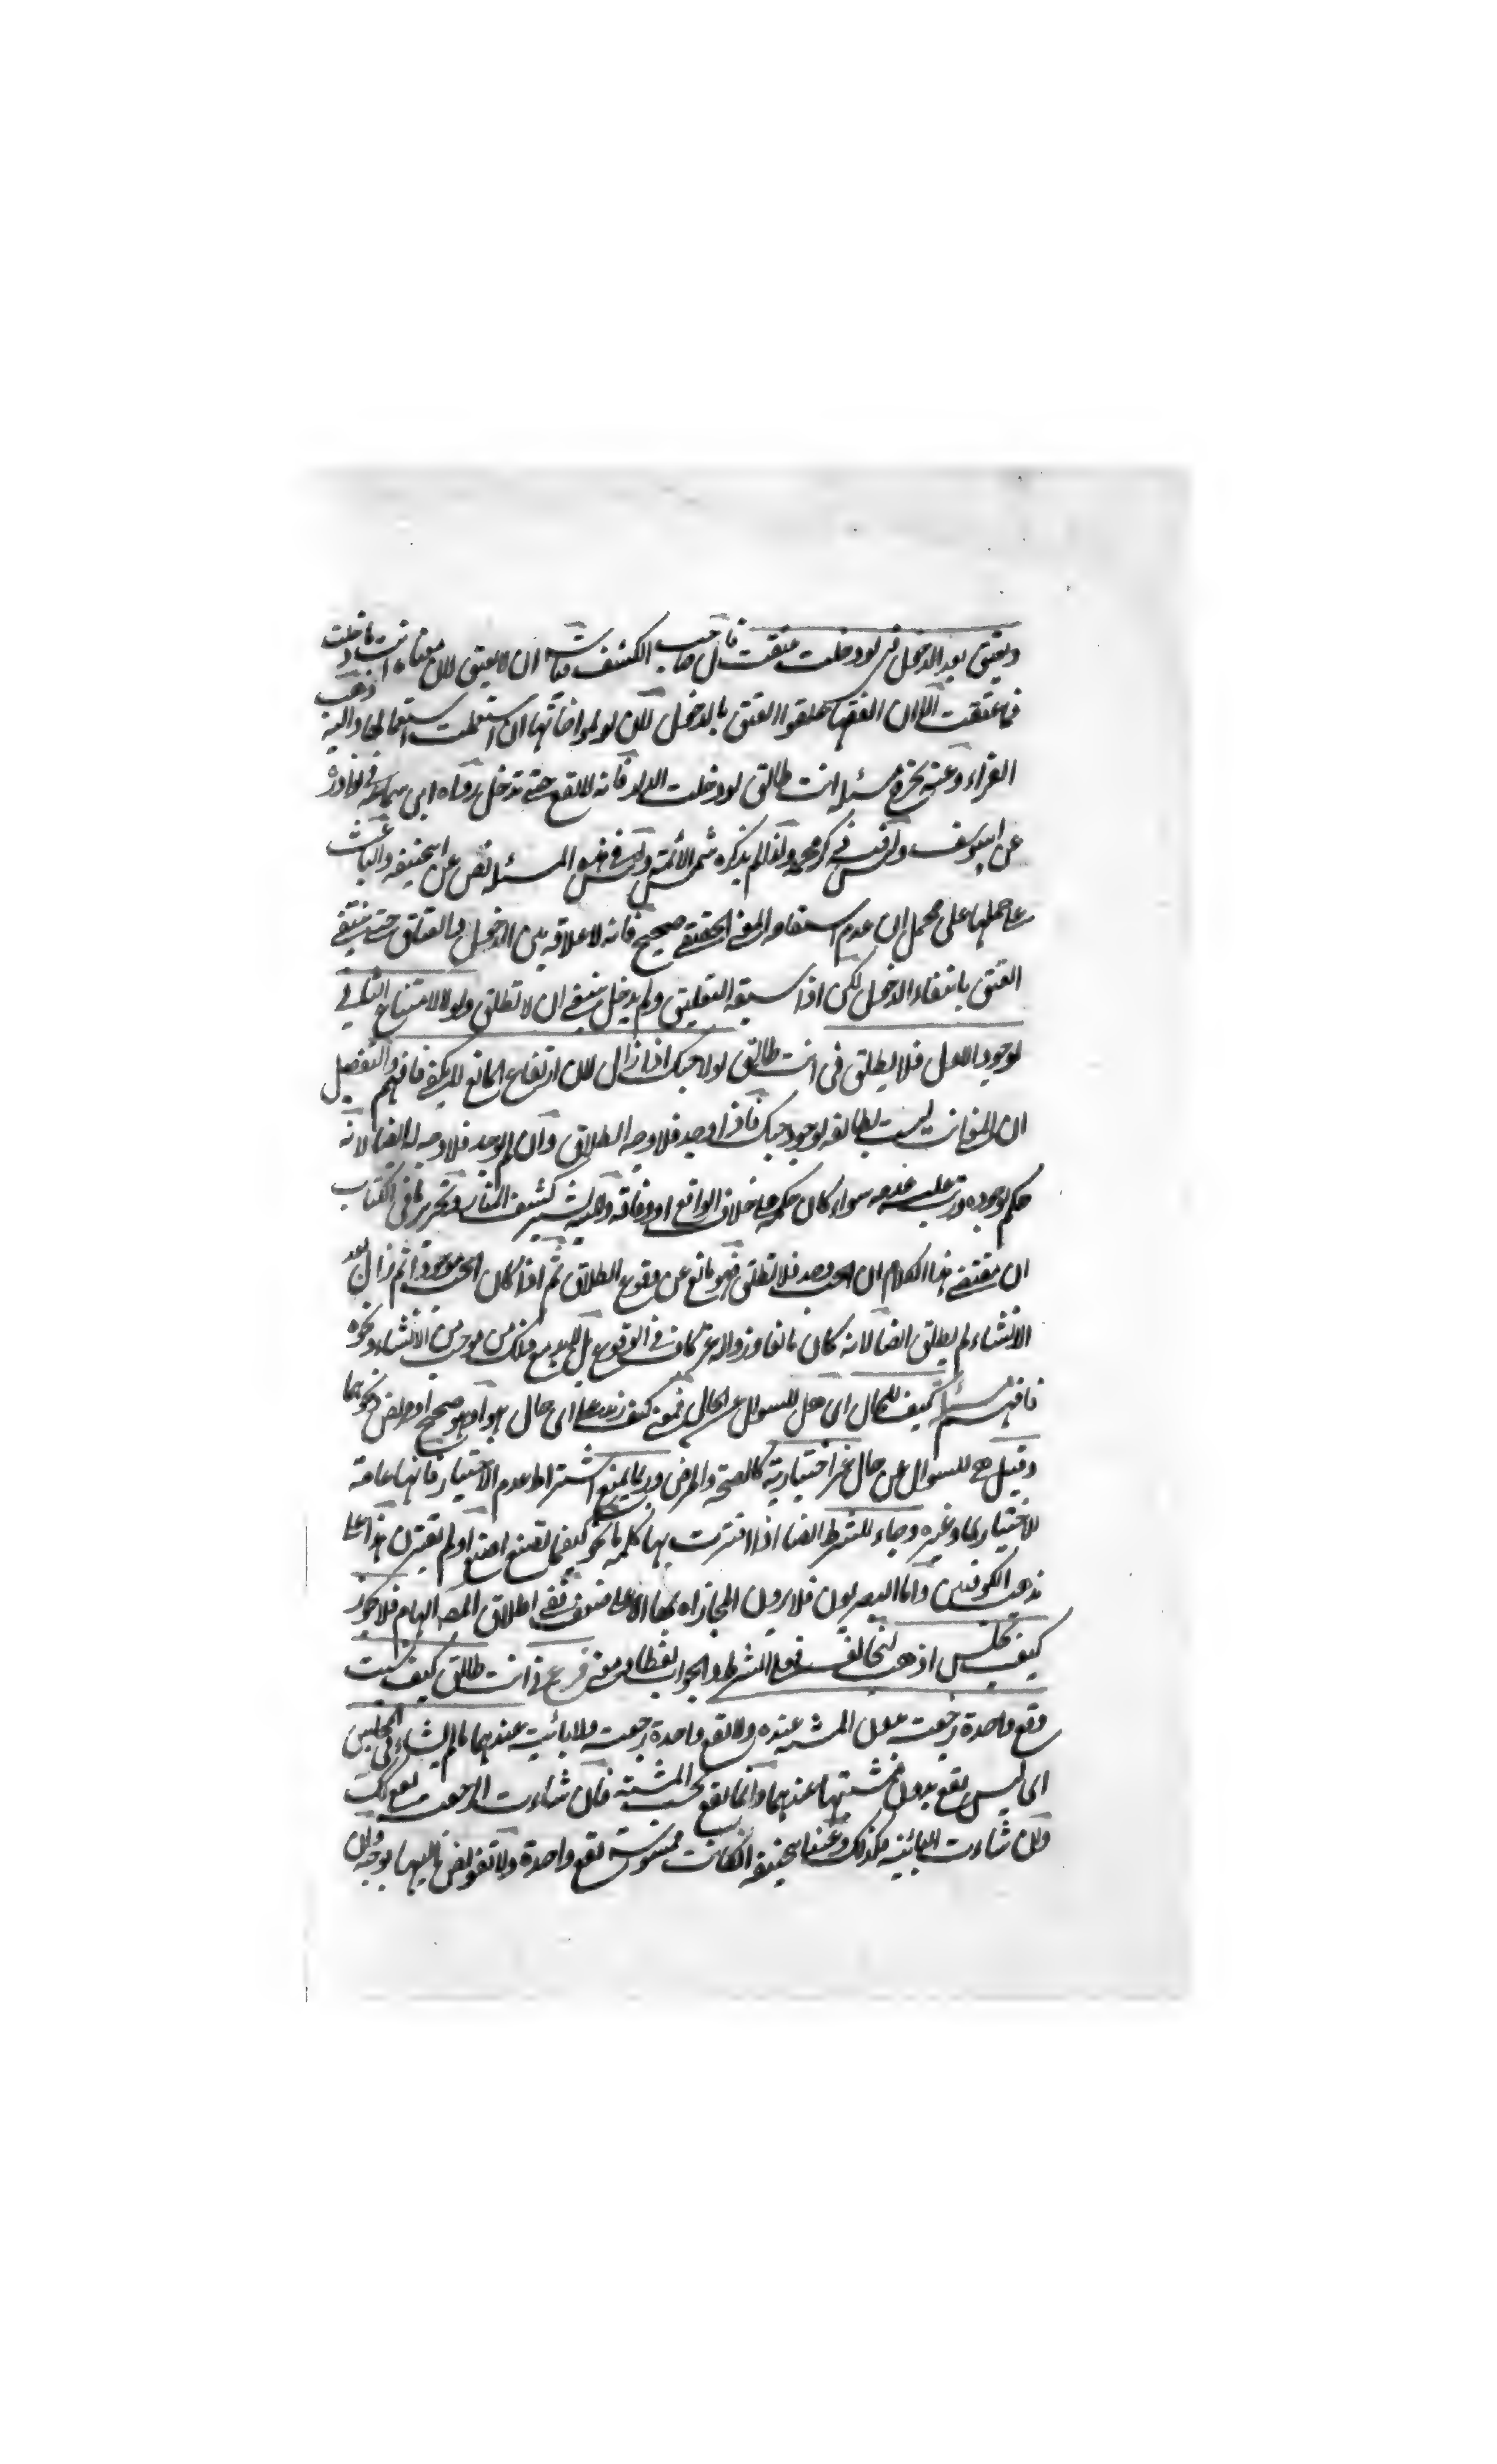 ويعتق بعد الدخول في لو دخلت عتقت قال صاحب الكشف قياسه ان لا يعتق لان معناه انت ما دخلت
فما عتقت الا ان الفقهاء علقوا العتق بالدخول لان لو لمواخاتها ان استعملت استعمالها واليه ذهب
الفراء وعنه يخرج مسئلة انت طالق لو دخلت الدار فانه لا تقع حتى تدخل رواه ابن سماعة في نوادره
عن ابي يوسف وليس فيه ذكر محمد ولذا لم يذكره شمس الأئمة وليس في هذه المسئلة نص عن ابي حنيفة والباعث
على حملها على محمل ان عدم استقامة المعنى الحقيقي صحيح فانه لا علاقة بين الدخول والعتاق حتى ينتفي
العتق بانتفاء الدخول لكن اذا سبقه التعليق ولم يدخل ينبغي ان لا تطلق ولولا لامتناع الثاني
لوجود الاول فلا يطلق في انت طالق لولا حبك اذا زال لان ارتفاع المانع لا يكفي فافهم والتفصيل
ان المعنى انت ليست بطالقة لوجود حبك فاذا وجد فلا وجه للطلاق وان لم يوجد فلا وجه له ايضا لانه
حكم لوجوده سواء كان حكمه على خلاف الواقع او وفاقه واليه يشير كشف المنار وتحرير ما في الكتاب
ان مقتضى هذا الكلام ان الحب وجد فلا تطلق فهو مانع عن وقوع الطلاق ثم اذا كان الحب موجودا ثم زال بعد
الانشاء لم يطلق ايضا لانه كان مانعا وزواله غير كاف في الوقوع بل لا بد مع ذلك من موجب من الانشاء ونحوه
فافهم مسئلة كيف للحال اي هل للسوال عن الحال فمعنى كيف زيد على اي حال هو اهو صحيح او مريض ونحوهما
وقيل هي للسوال عن حال غير اختيارية كالصحة والمرض وربما يمنع اشتراط عدم الاختيار فانها عامة
للاختيارية وغيره وجاء للشرط ايضا اذا اقترنت بها كلمة ما نحو كيفما تصنع اصنع او لم تقترن هذا على
مذهب الكوفيين واما البصريون فلا يرون المجازاة بها الا على ضعف ففي اطلاق المصـ ابهام فلا يجوز
كيف تجلس اذهب لتخالف فعلي الشرط والجواب لفظا ومعنى فرع في انت طالق كيف شئت
وقع واحدة رجعية بدون المشية عنده ولا تقع واحدة رجعية ولا بائنة عندهما ما لم يشاء في المجلس
اي ليس يقع بدون مشيتها عندهما وانما يقع بحسب المشية فان شاءت الرجعية يقع تلك
وان شاءت البائنة فكذلك وعند ابي حنيفة ان كانت ممسوسة تقع واحدة ولا تفويض اليها بوجه وان